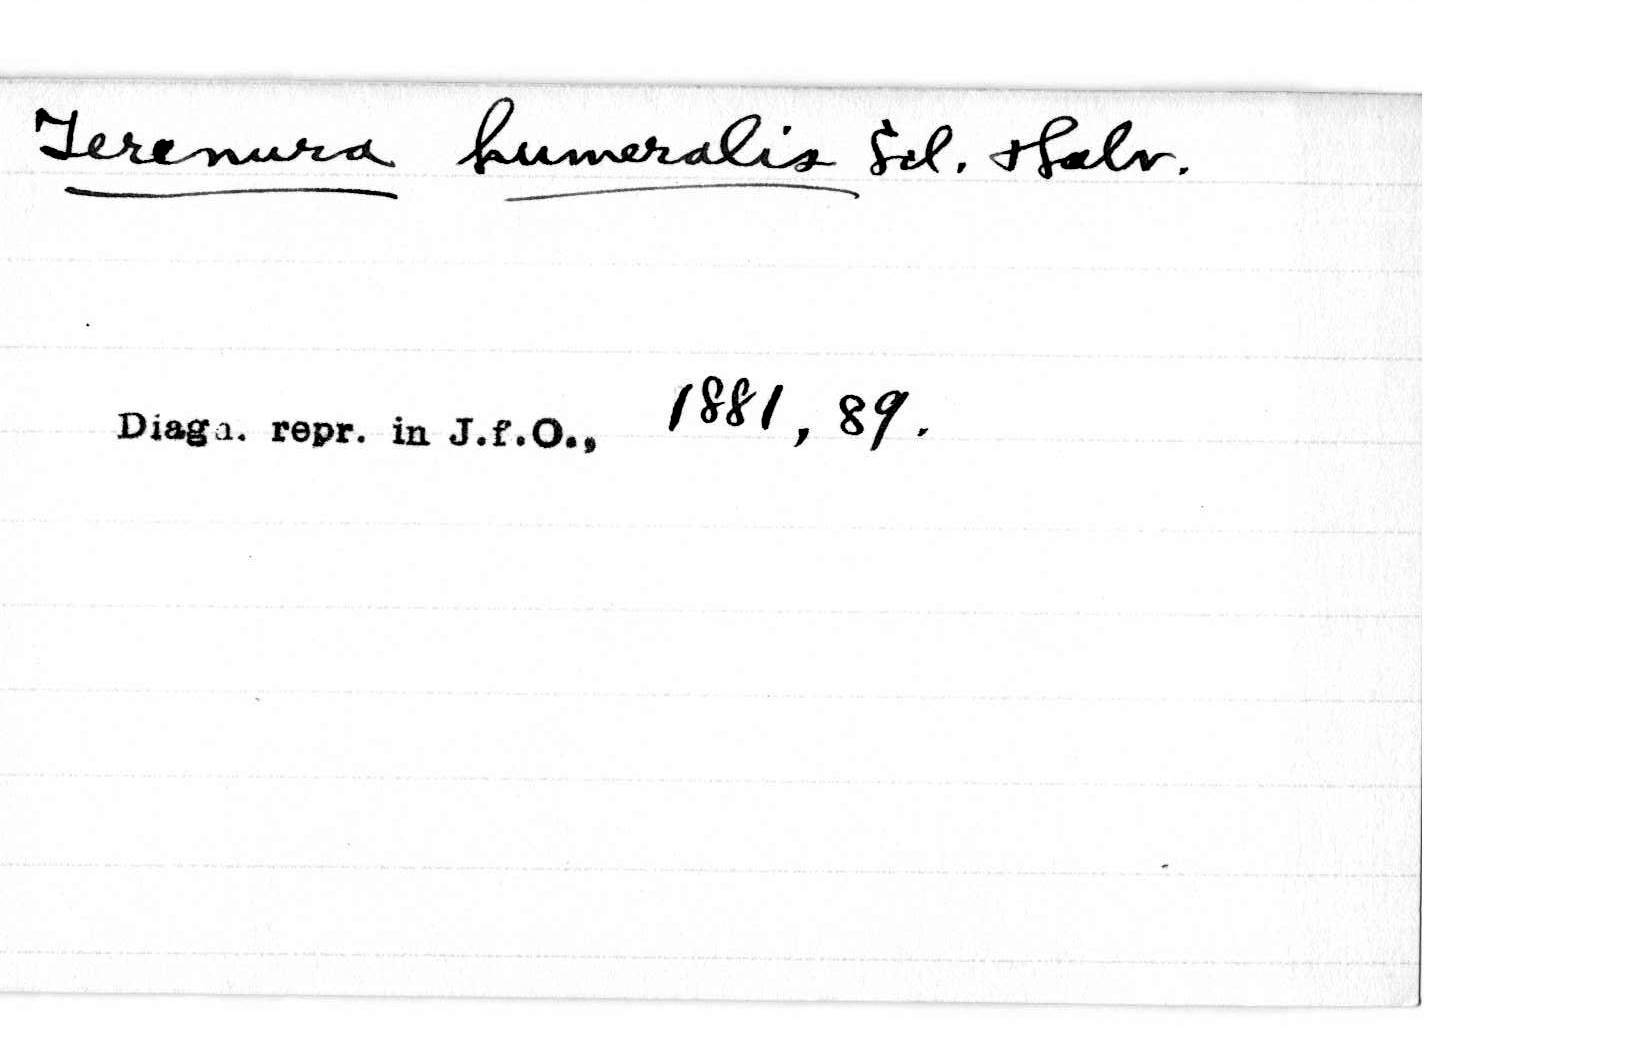 Terenura humeralis Scl. & Salv.
Diagn. repr. in J.f.O., 1881, 89.